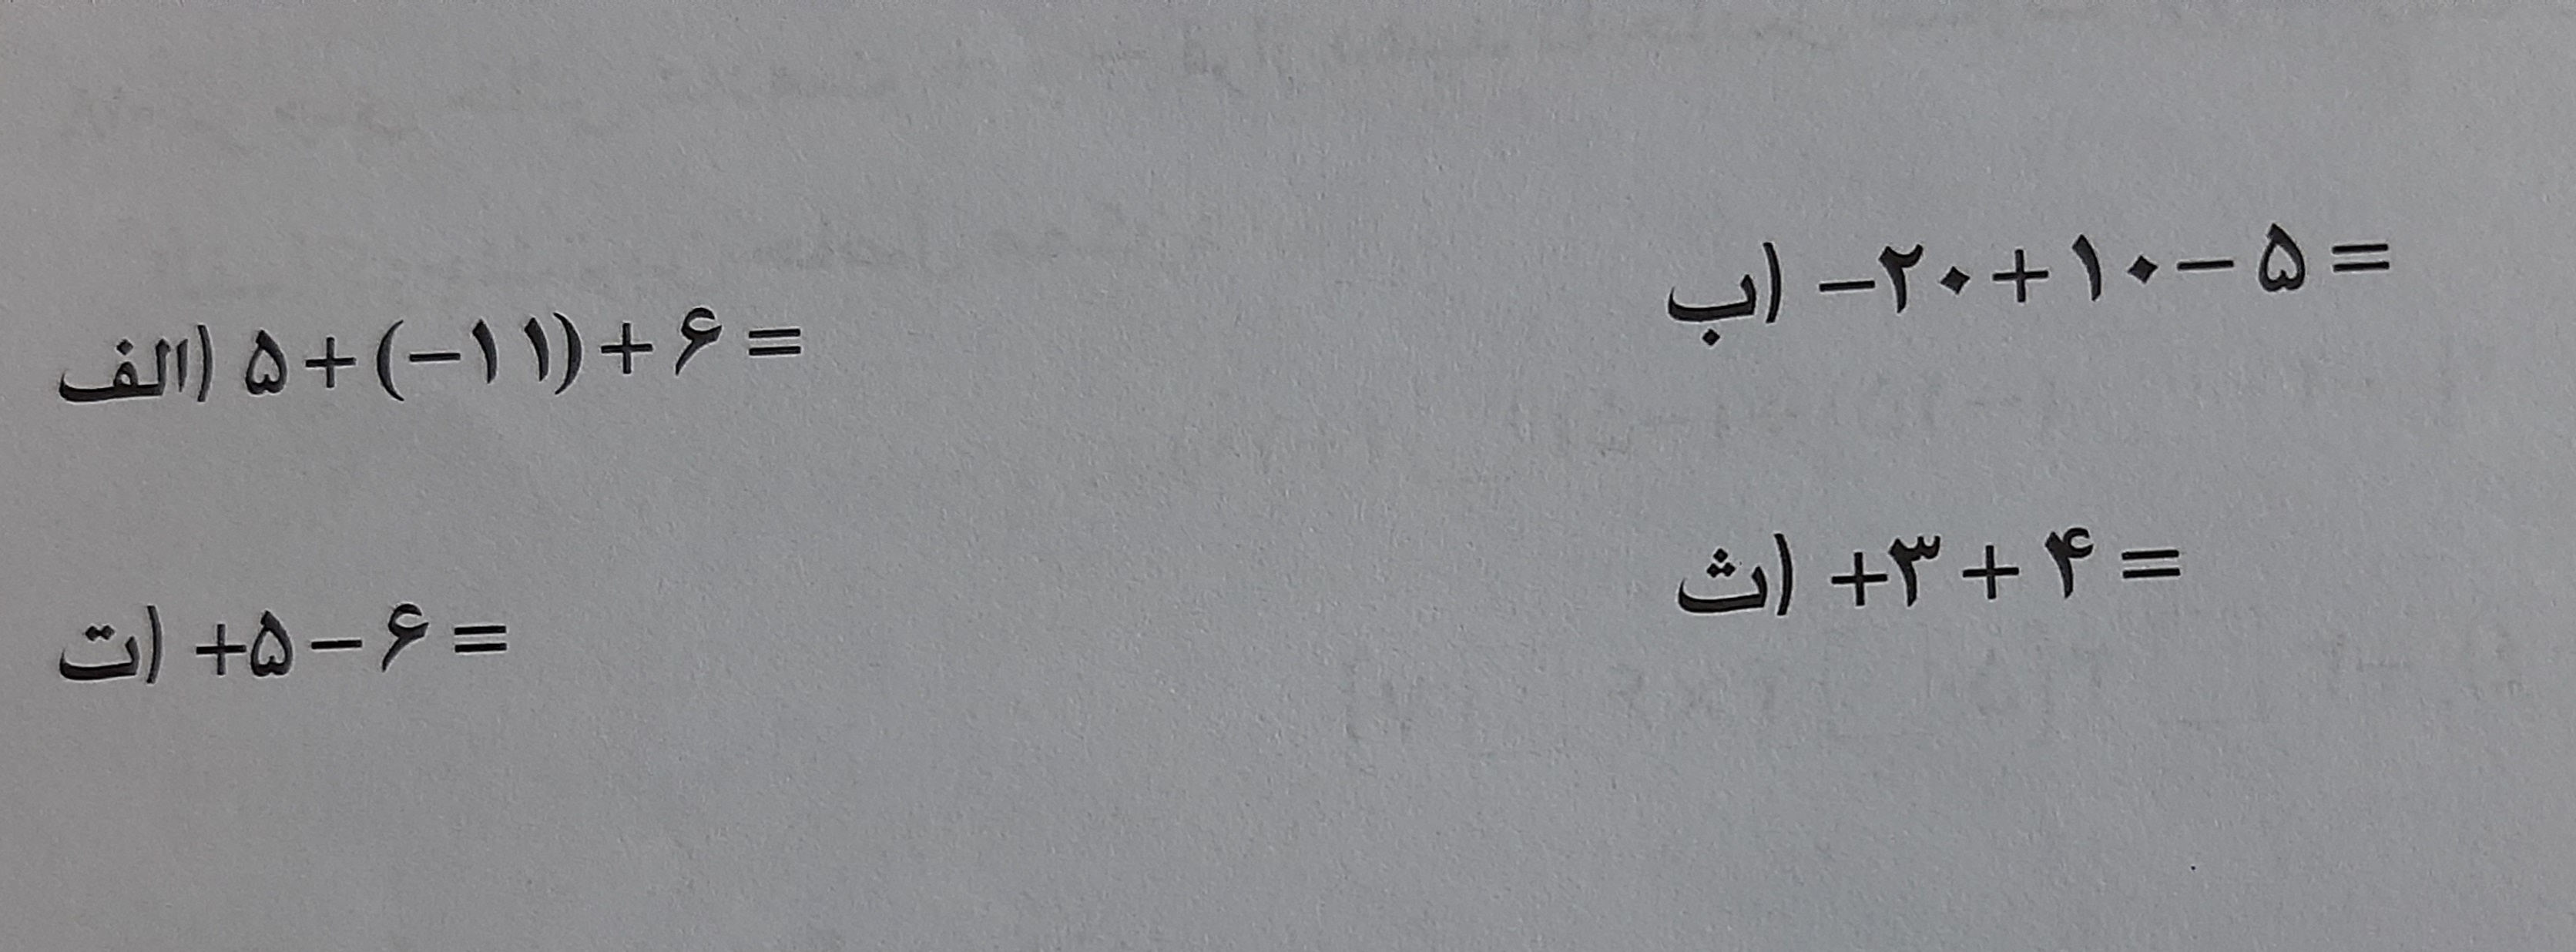 الف) ۵+(−۱۱)+۶=
ب) −۲۰+۱۰−۵=
ت) +۵−۶=
ث) +۳+۴=